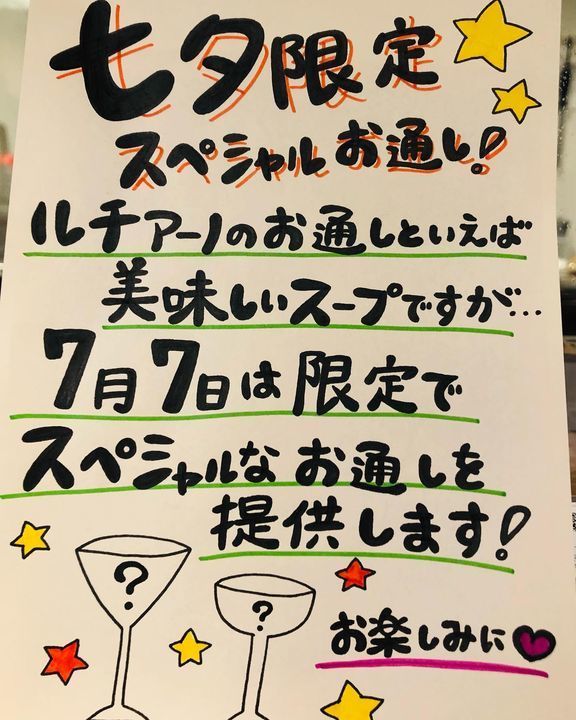 七夕限定
スペシャルお通し!
ルチアーノのお通しといえば
美味しいスープですが…
7月7日は限定で
スペシャルなお通しを
提供します!
?
?
お楽しみに